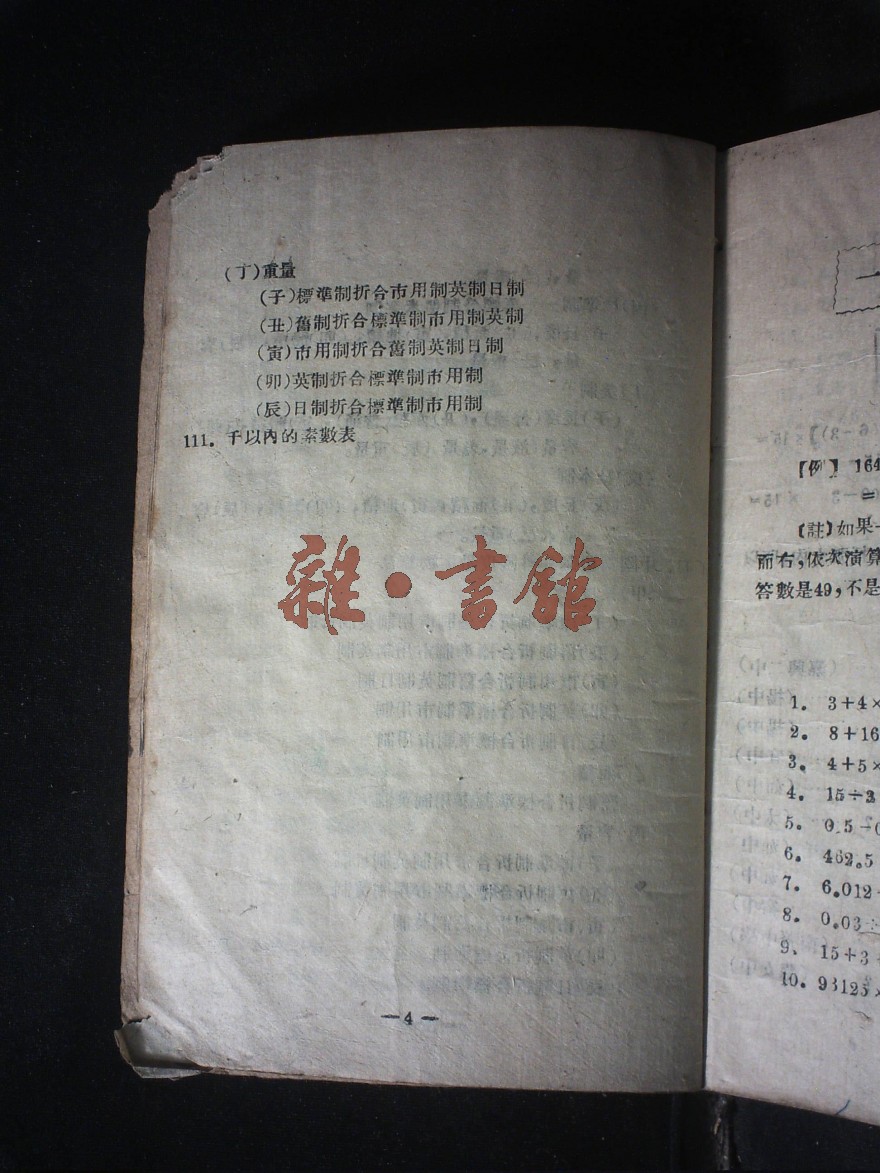 (丁)重量
(子)標準制折合市用制英制日制
(丑)舊制折合標準制市用制英制
(寅)市用制折合舊制英制日制
(卯)英制折合標準制市用制
(辰)日制折合標準制市用制
111. 千以內的素數表
雜·書館
—4—
【例】 164
=
【註】如果
而右,依次演算
答數是49,不是
1. 3+4×
2. 8+16
3. 4+5×
4. 15÷3
5. 0.5-0
6. 462.5
7. 6.012
8. 0.03÷
9. 15+3
10. 93125×